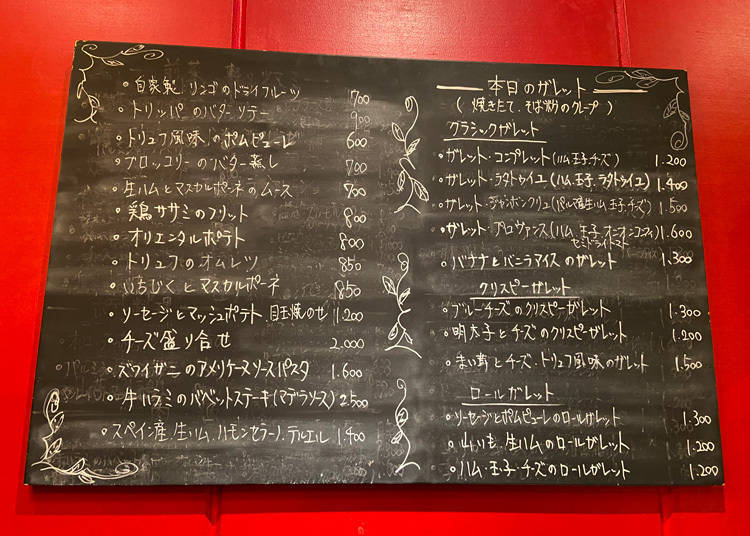 自家製 リンゴのドライフルーツ 700
トリッパのバターソテー 900
トリュフ風味のポムピューレ 600
ブロッコリーのバター蒸し 700
生ハムとマスカルポーネのムース 700
鶏ササミのフリット 800
オリエンタルポテト 800
トリュフのオムレツ 850
いちじくとマスカルポーネ 850
ソーセージとマッシュポテト 目玉焼のせ 1.200
チーズ盛り合せ 2.000
ズワイガニのアメリケーヌソースパスタ 1.600
牛ハラミのバベットステーキ(マデラソース) 2.500
スペイン産 生ハム ハモンセラーノ テルエル 1.400
本日のガレット
(焼きたて、そば粉のクレープ)
クラシックガレット
ガレット・コンプレット(ハム、玉子、チーズ) 1.200
ガレット・ラタトゥイユ(ハム、玉子、ラタトゥイユ) 1.400
ガレット・ジャンボンクリュ(パルマ産生ハム、玉子、チーズ) 1.500
ガレット・プロヴァンス(ハム、玉子、オニオンコンフィ 1.600
セミドライトマト
バナナとバニラアイスのガレット 1.300
クリスピーガレット
ブルーチーズのクリスピーガレット 1.300
明太子とチーズのクリスピーガレット 1.200
まい茸とチーズ・トリュフ風味のガレット 1.500
ロールガレット
ソーセージとポムピューレのロールガレット 1.300
山いも、生ハムのロールガレット 1.200
ハム・玉子・チーズのロールガレット 1.200